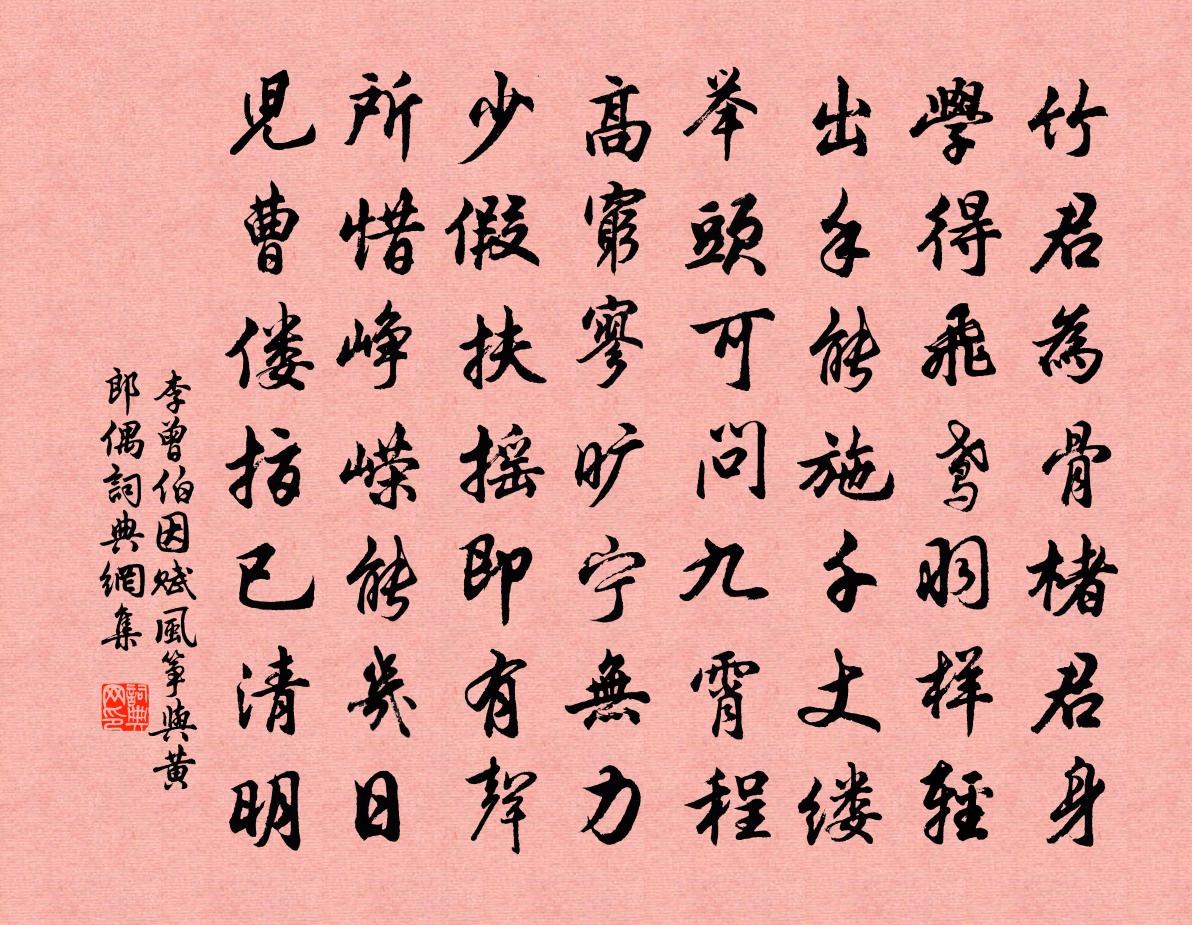 竹君為骨楮君身
學得飛鳶羽样輕
出手能施千丈缕
举頭可問九霄程
高窮寥旷宁無力
少假扶摇即有聲
所惜峥嵘能幾日
児曹偻指已清明
李曾伯因赋風筝與黄
郎偶詞典網集
詞典
网印